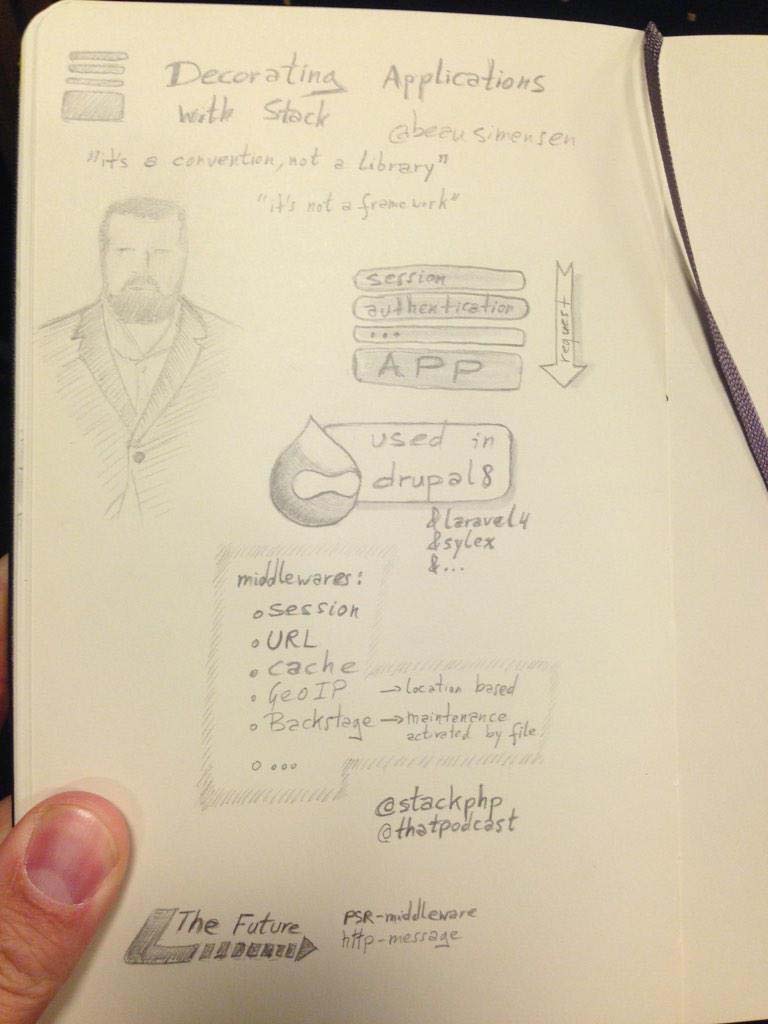 Decorating Applications
with Stack
@beausimensen
"it's a convention, not a library"
"it's not a framework"
session
authentication
...
APP
request
used in
drupal8
&laravel4
&sylex
&...
middlewares:
session
URL
cache
GeoIP → location based
Backstage → maintenance
activated by file
...
@stackphp
@thatpodcast
The Future
PSR-middleware
http-message